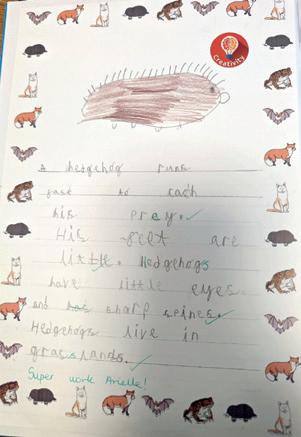 Creativity
A hedgehog runs
fast to cach
his prey.
His feet are
little. Hedgehogs
have little eyes.
and has sharp spines.
Hedgehogs live in
grasslands.
Super work Arielle!